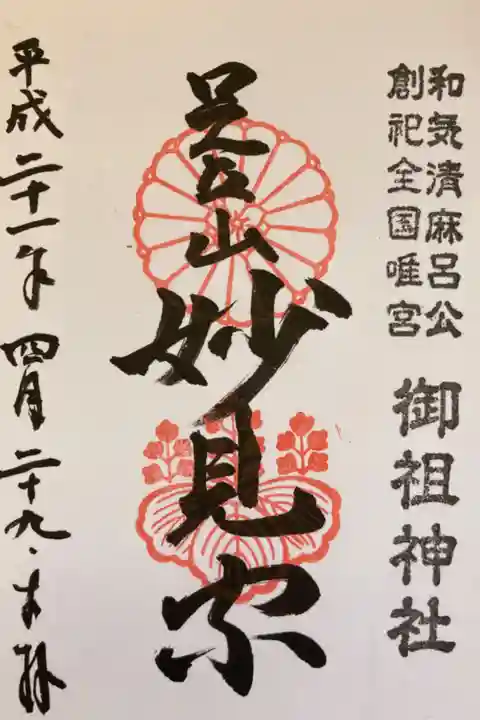 和気清麻呂公
創祀全国唯宮
御祖神社
足立山
妙見宮
平成二十一年四月二十九日拝